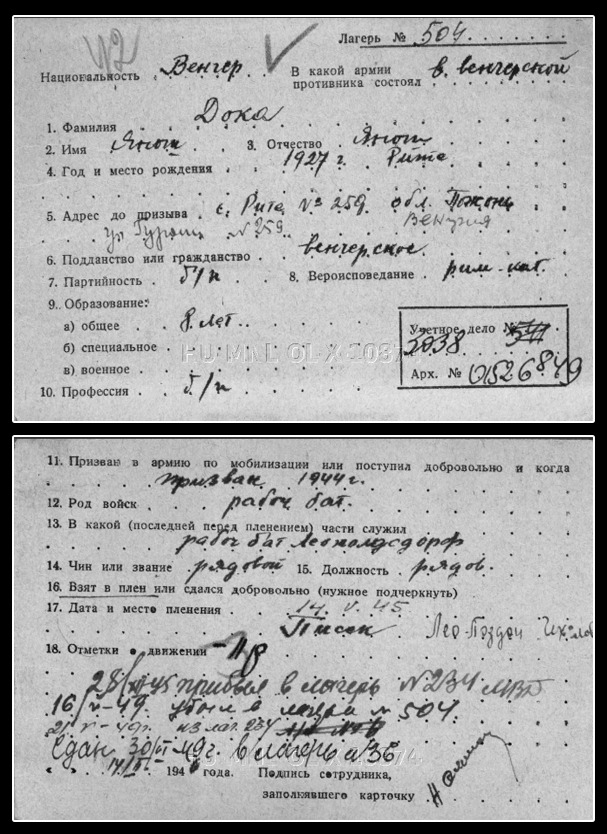 Лагерь № 504
№2
Национальность Венгер В какой армии противника состоял в. венгерской
1. Фамилия Дока
2. Имя Янош 3. Отчество Янош
4. Год и место рождения 1927 г. Рита
5. Адрес до призыва с. Рита № 259 обл. Пожонь
Венгрия
ул № 259
6. Подданство или гражданство венгерское
7. Партийность б/п 8. Вероисповедание рим-кат.
9. Образование:
а) общее 8 лет
б) специальное
в) военное
10. Профессия б/п
Учетное дело №
3038
Арх. № 01526849
11. Призван в армию по мобилизации или поступил добровольно и когда
призван 1944 г.
12. Род войск рабоч бат.
13. В какой (последней перед пленением) части служил
рабоч бат Леополдсдорф
14. Чин или звание рядовой 15. Должность рядов.
16. Взят в плен или сдался добровольно (нужное подчеркнуть)
17. Дата и место пленения 14. V. 45
Писек
18. Отметки о движении
прибыл в лагерь № 234
16/V-49. убыл в лагерь № 504.
из лаг. 234
Сдан 30/VI-49 г. в лагерь № 36
194 года. Подпись сотрудника,
заполнявшего карточку